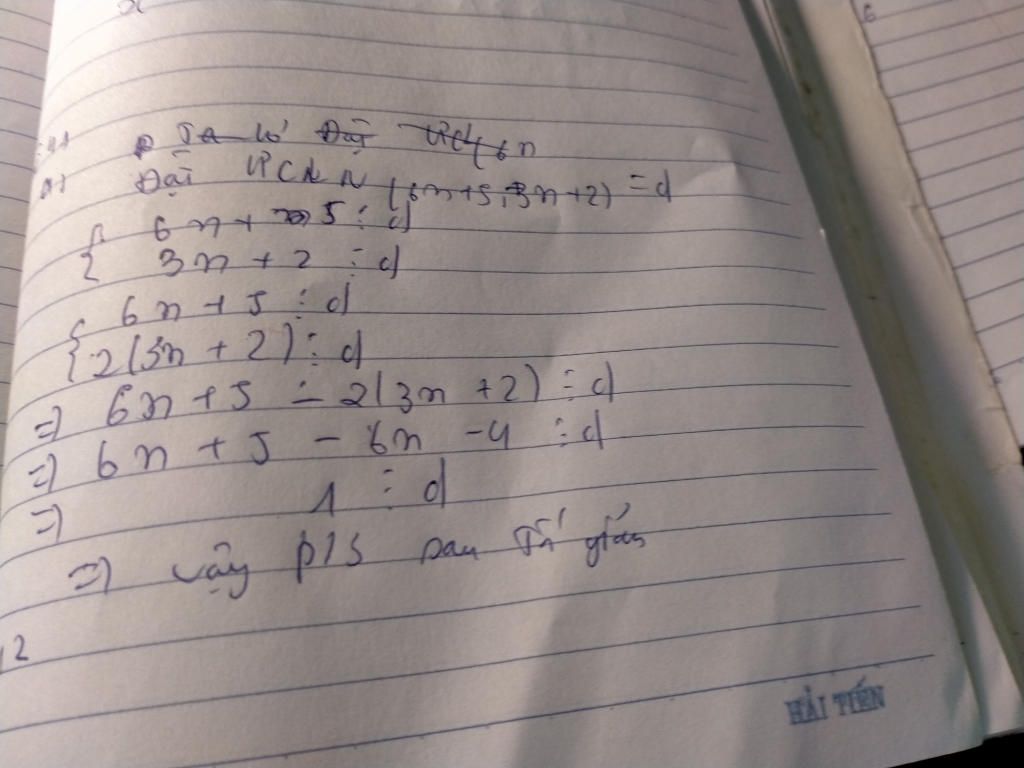 Ta có Đặt ƯCLN 6n
Đặt ƯCNN (6n+5, 3n+2) = d
{ 6n + 5 ⋮ d
3n + 2 ⋮ d
{ 6n + 5 ⋮ d
2(3n + 2) ⋮ d
=> 6n + 5 - 2(3n + 2) ⋮ d
=> 6n + 5 - 6n - 4 ⋮ d
=> 1 ⋮ d
=> vậy p/s sau tối giản
12
HẢI TIẾN
6